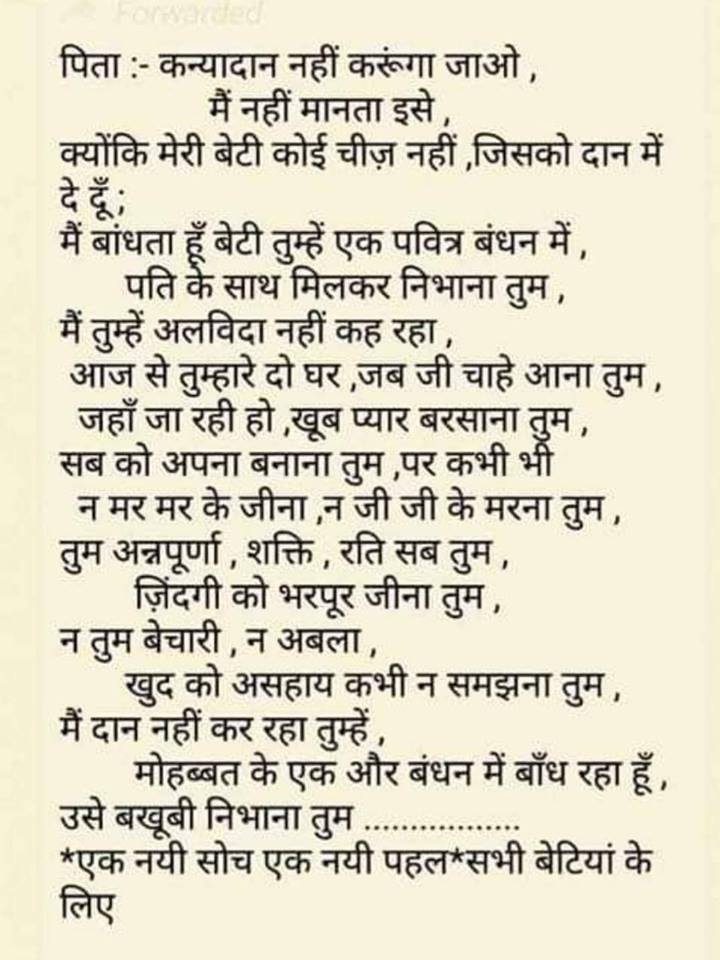 Forwarded
पिता :- कन्यादान नहीं करूंगा जाओ ,
मैं नहीं मानता इसे ,
क्योंकि मेरी बेटी कोई चीज़ नहीं ,जिसको दान में
दे दूँ ;
मैं बांधता हूँ बेटी तुम्हें एक पवित्र बंधन में ,
पति के साथ मिलकर निभाना तुम ,
मैं तुम्हें अलविदा नहीं कह रहा ,
आज से तुम्हारे दो घर ,जब जी चाहे आना तुम ,
जहाँ जा रही हो ,खूब प्यार बरसाना तुम ,
सब को अपना बनाना तुम ,पर कभी भी
न मर मर के जीना ,न जी जी के मरना तुम ,
तुम अन्नपूर्णा , शक्ति , रति सब तुम ,
ज़िंदगी को भरपूर जीना तुम ,
न तुम बेचारी , न अबला ,
खुद को असहाय कभी न समझना तुम ,
मैं दान नहीं कर रहा तुम्हें ,
मोहब्बत के एक और बंधन में बाँध रहा हूँ ,
उसे बखूबी निभाना तुम .................
*एक नयी सोच एक नयी पहल*सभी बेटियां के
लिए